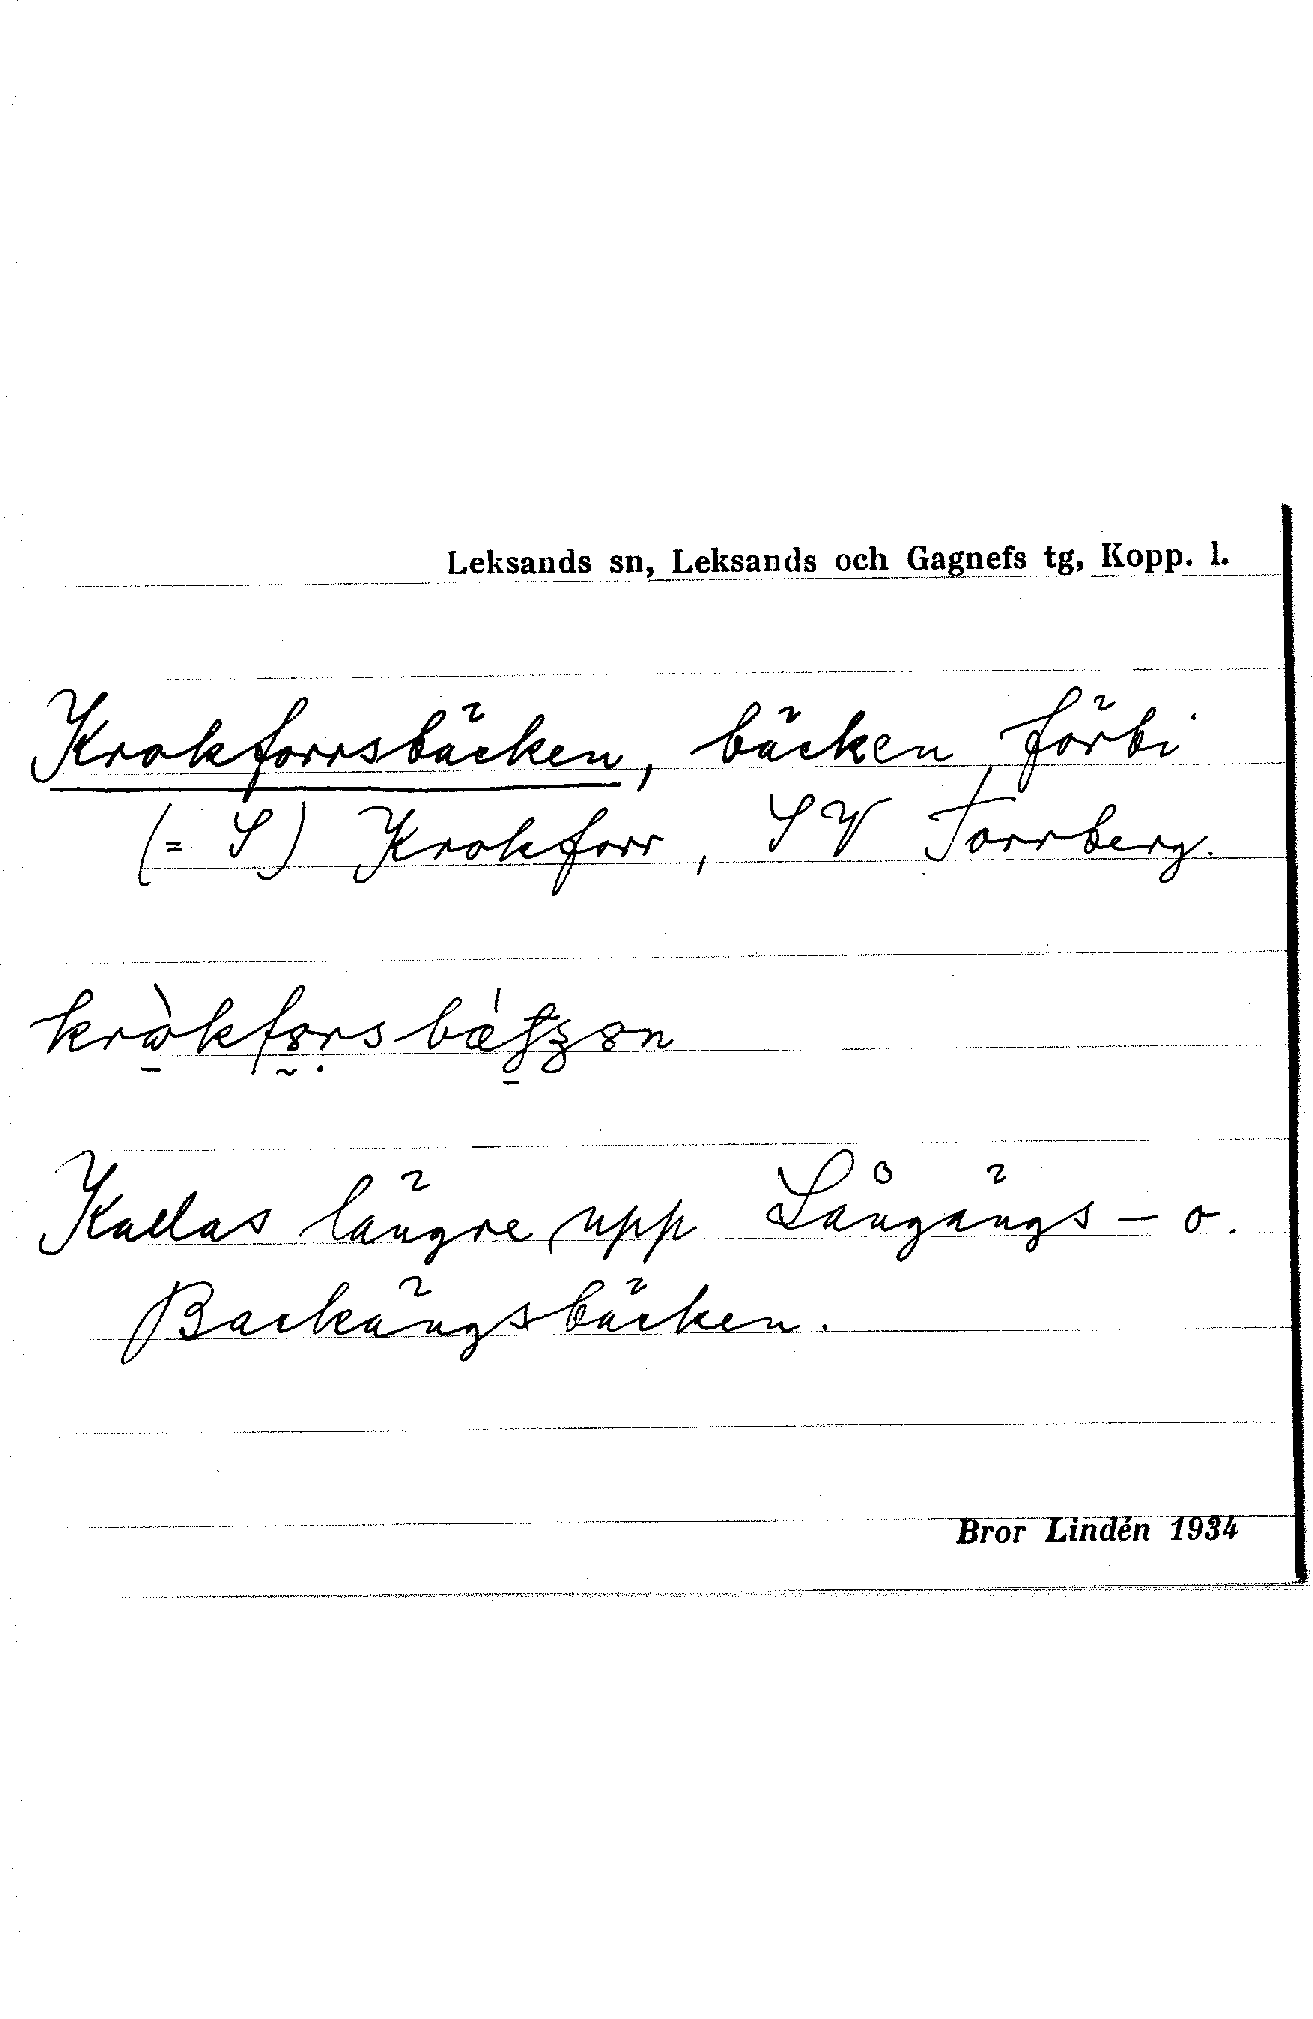 Leksands sn, Leksands och Gagnefs tg, Kopp. l.
Krokforrsbäcken, bäcken förbi
(= S) Krokforr, SV Torrberg.
Kallas längre upp Långängs- o.
Backängsbäcken.
Bror Lindén 1934